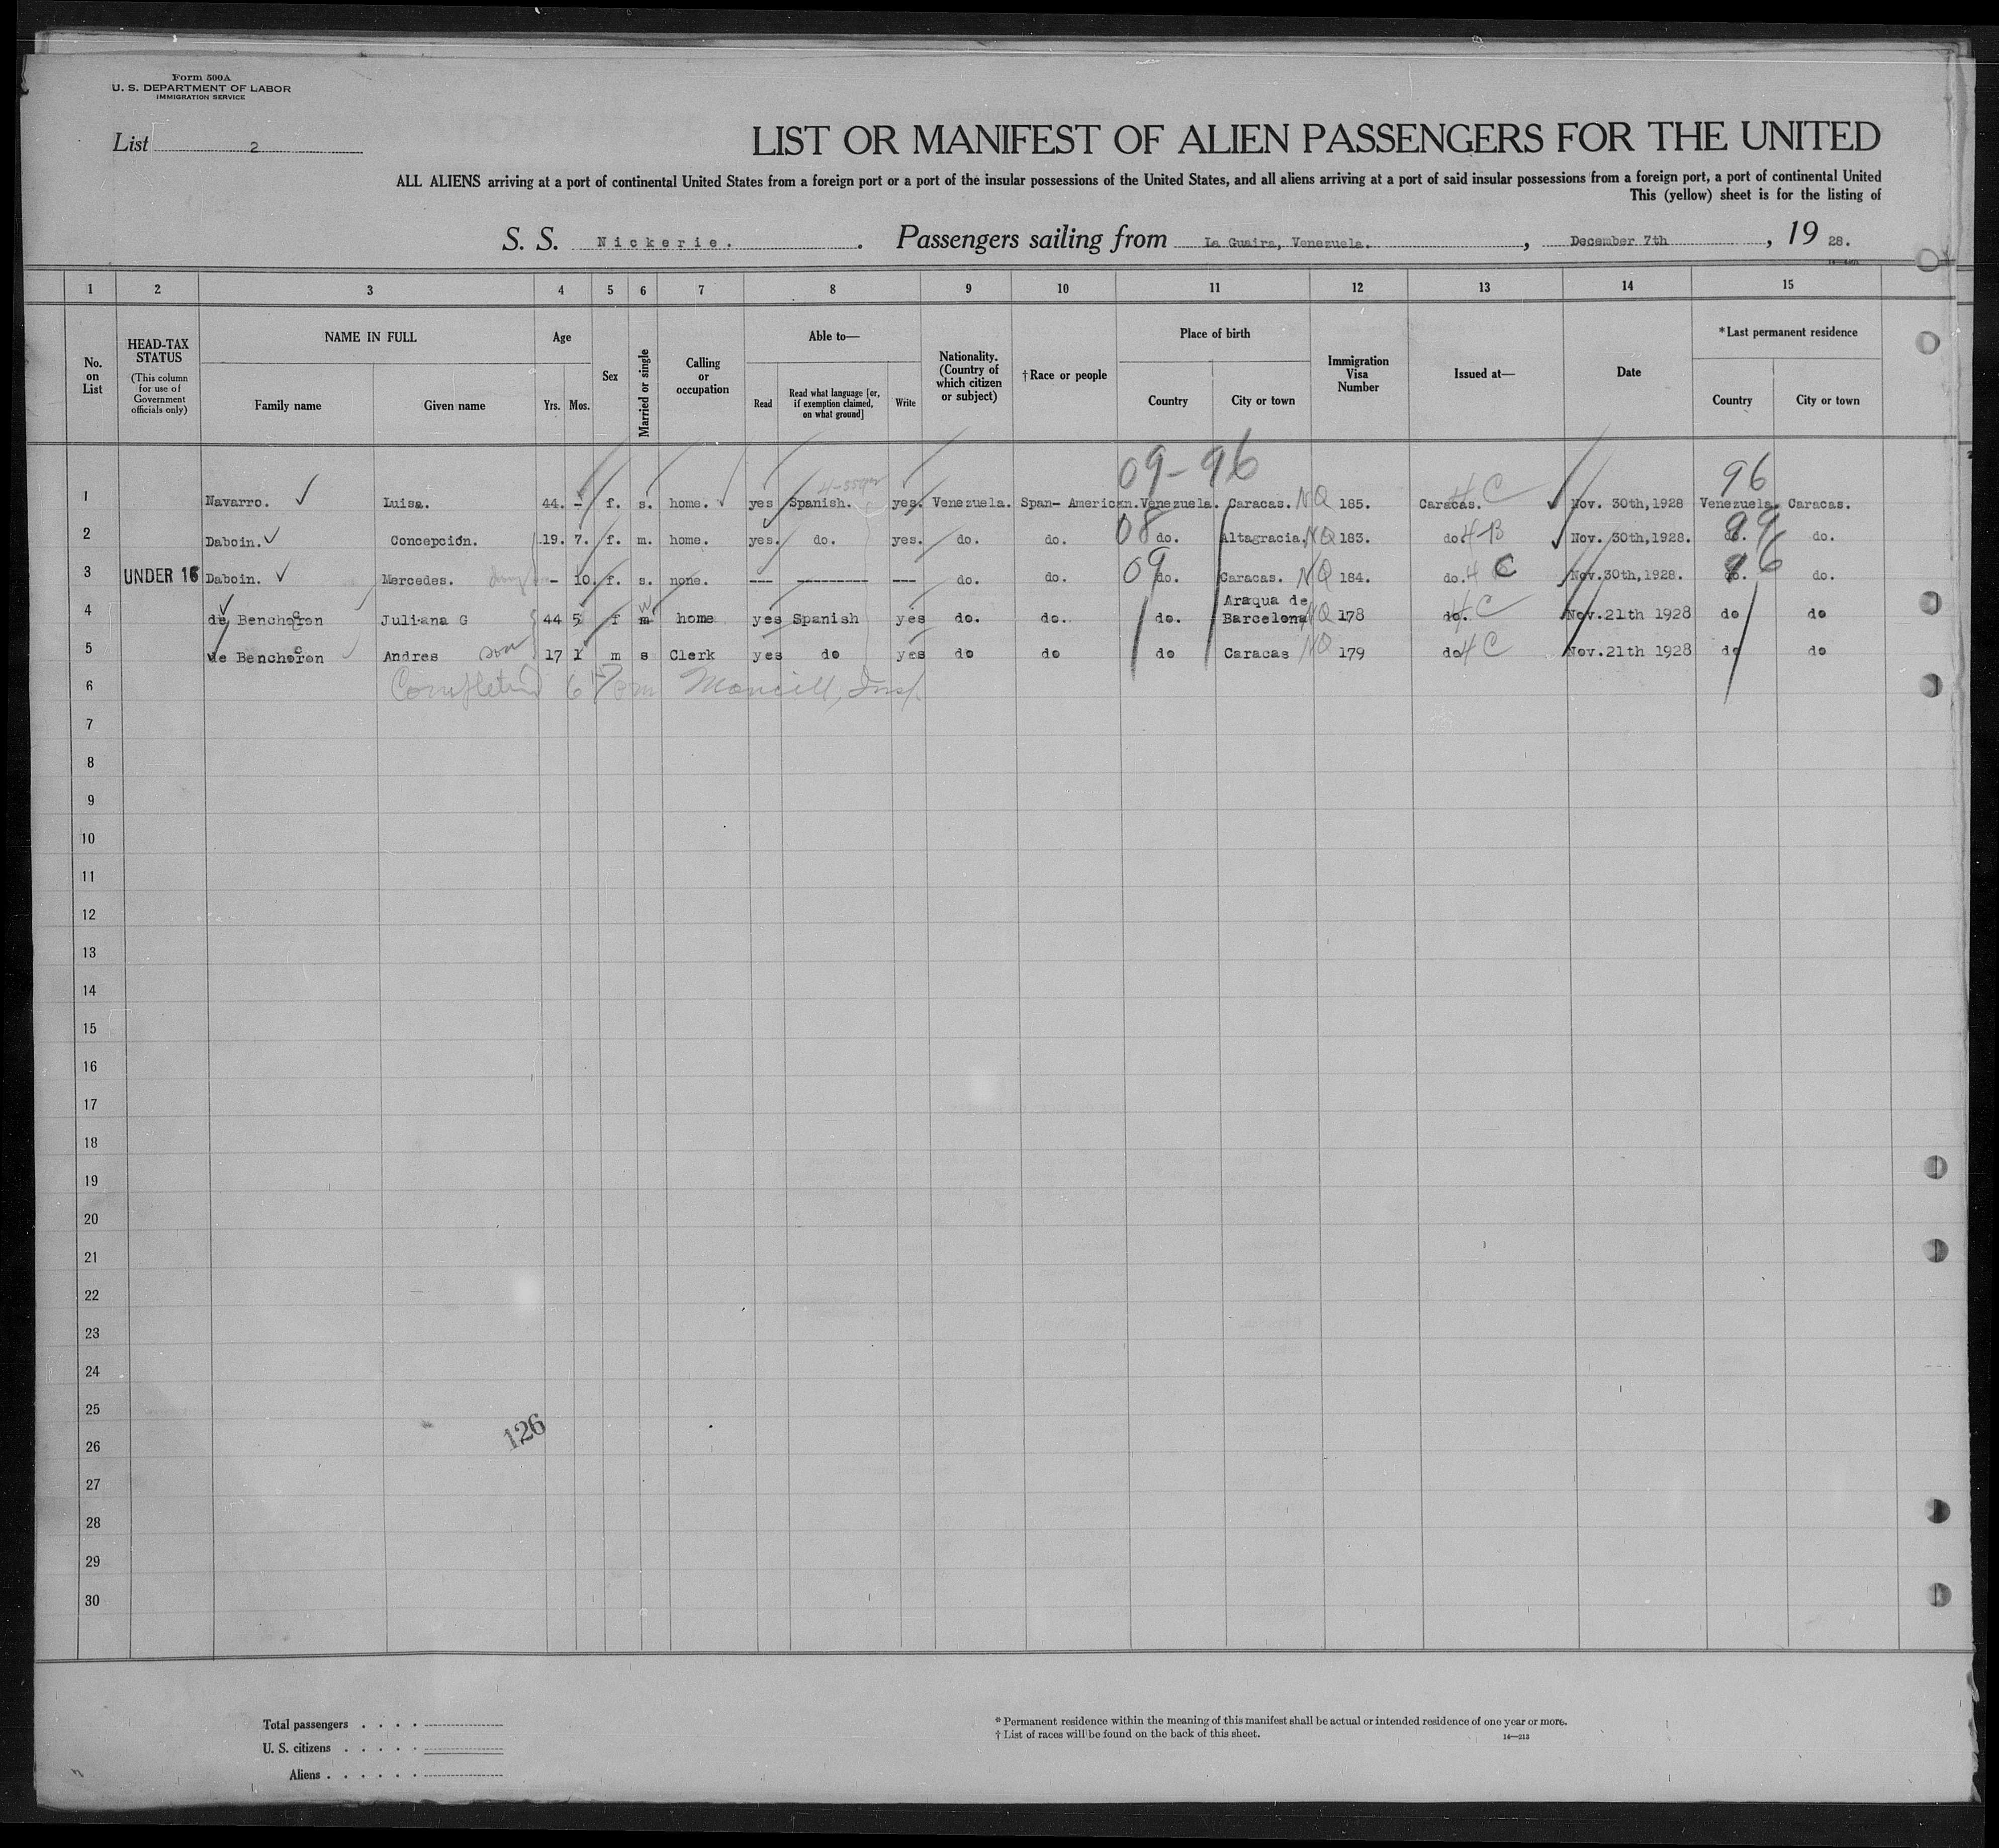 Form 500A
U. S. DEPARTMENT OF LABOR
IMMIGRATION SERVICE
List 2
LIST OR MANIFEST OF ALIEN PASSENGERS FOR THE UNITED
ALL ALIENS arriving at a port of continental United States from a foreign port or a port of the insular possessions of the United States, and all aliens arriving at a port of said insular possessions from a foreign port, a port of continental United
This (yellow) sheet is for the listing of
S. S. Nickerie. . Passengers sailing from La Guaira, Venezuela. , December 7th , 19 28.
1 2 3 4 5 6 7 8 9 10 11 12 13 14 15
No. on List
HEAD-TAX STATUS
(This column for use of Government officials only)
NAME IN FULL
Family name Given name
Age
Yrs. Mos.
Sex
Married or single
Calling or occupation
Able to—
Read Read what language [or, if exemption claimed, on what ground] Write
Nationality. (Country of which citizen or subject)
†Race or people
Place of birth
Country City or town
Immigration Visa Number
Issued at—
Date
*Last permanent residence
Country City or town
09-96 96
1 Navarro. Luisa. 44. - f. s. home. yes Spanish. yes. Venezuela. Span- American. Venezuela. Caracas. NQ 185. Caracas. 4C Nov. 30th,1928 Venezuela. Caracas.
2 Daboin. Concepción. 19. 7. f. m. home. yes. do. yes. do. do. 08 do. Altagracia. NQ 183. do. 4-B Nov. 30th,1928. do. 99 do.
3 UNDER 16 Daboin. Mercedes. - 10. f. s. none. --- ---------- --- do. do. 09 do. Caracas. NQ 184. do. 4 C Nov.30th,1928. do. 96 do.
4 de Bencheron Juliana G 44 5 f m w home yes Spanish yes do. do. do. Araqua de Barcelona NQ 178 do. 4C Nov.21th 1928 do do
5 de Bencheron Andres son 17 1 m s Clerk yes do yes do do do Caracas NQ 179 do 4C Nov.21th 1928 do do
6 Completed 6 pm Insp.
7
8
9
10
11
12
13
14
15
16
17
18
19
20
21
22
23
24
25
126
26
27
28
29
30
Total passengers . . . .
U. S. citizens . . . . .
Aliens . . . . . .
* Permanent residence within the meaning of this manifest shall be actual or intended residence of one year or more.
† List of races will be found on the back of this sheet.
14—213